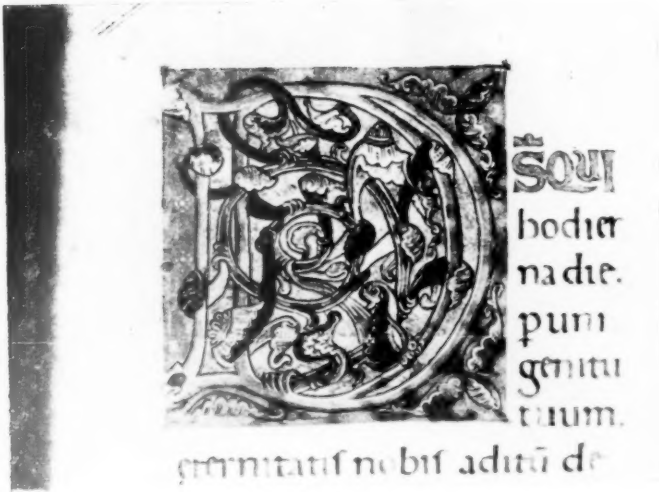 DS̄ QUI
hodier
na die.
p uni
genitu
tuum.
eternitatiſ nobiſ aditū de